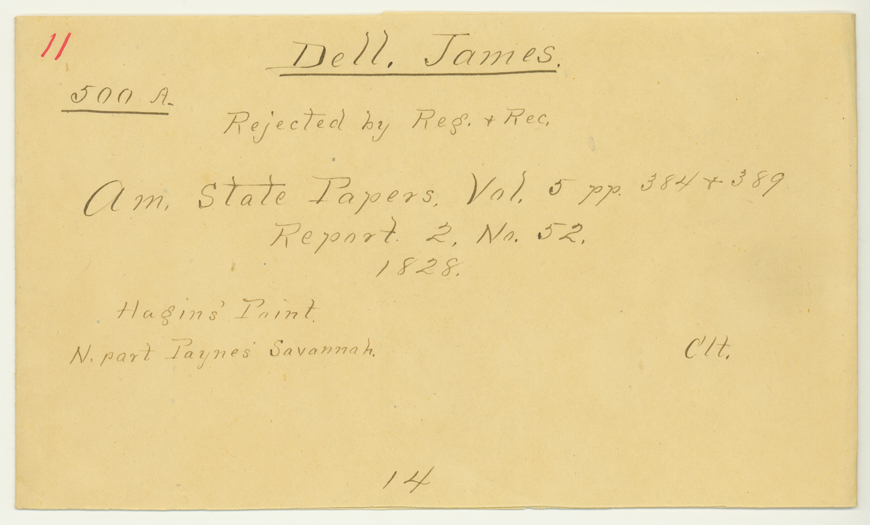 11
Dell, James.
500 A.
Rejected by Reg. & Rec.
Am. State Papers, Vol. 5 pp. 384 & 389
Report 2, No. 52.
1828.
Hagins' Point.
N. part Paynes' Savannah.
Clt.
14